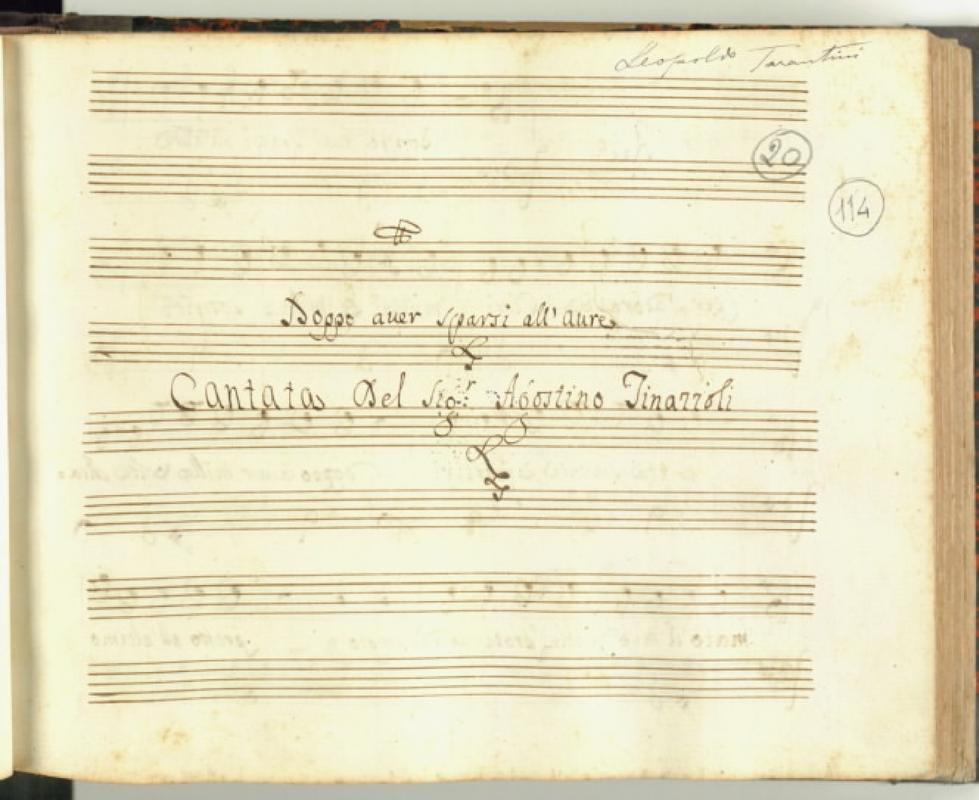 Leopoldo Tarantini
20
114
Doppo auer sparsi all' aure
Cantata Del Sig.r Agostino Tinazzoli